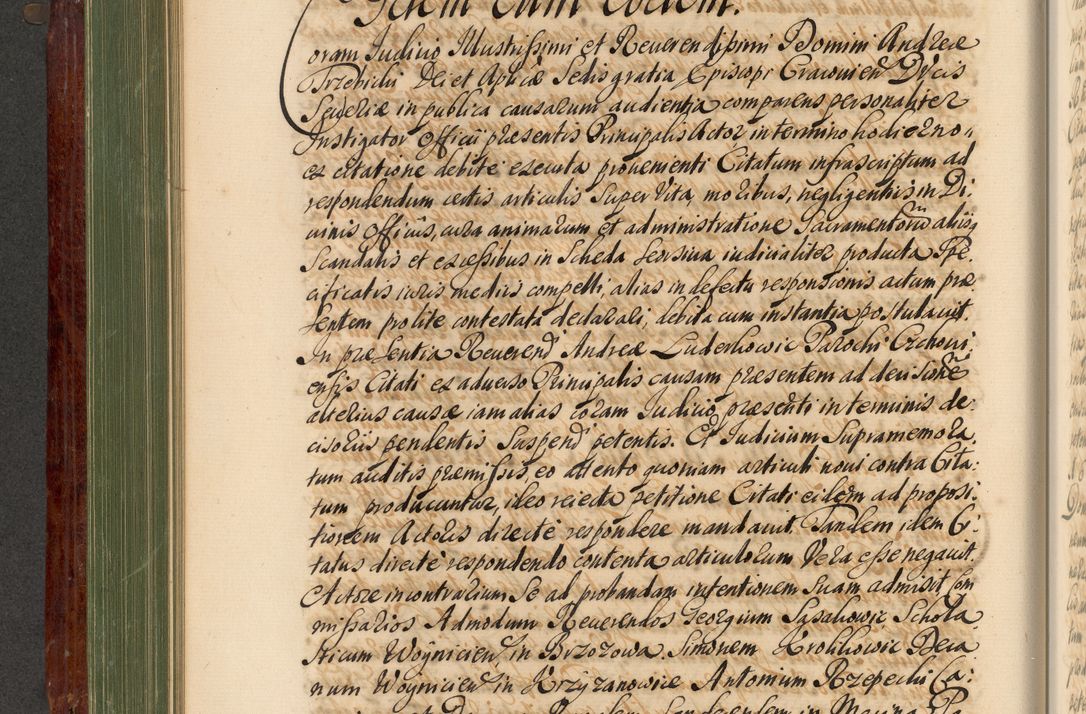 Idem cum eodem.
oram Iudicio Illustrissimi et Reverendissimi Domini Andreæ
Trzebicki Dei et Aplicæ Sedis gratia Episcopi Cracovien Ducis
Severiæ in publica causarum audientia comparens personaliter
Instigator Officii præsentis Principalis Actor in termino hodierno
ex citatione debite executa provenienti Citatum infrascriptum ad
respondendum certis articulis super vita, moribus, negligentiis in Di:
vinis Officiis, cura animarum et administratione Sacramentorum aliisq
Scandalis et excessibus in Scheda seorsiva iudicialiter producta Spe:
cificatis iuris mediis compelli, alias in defectu responsionis actum præ:
sentem pro lite contestata declarari, debita cum instantia postulavit.
In præsentia Reverend Andreæ Luderkowic Parochi Crchovi:
ensis Citati ex adverso Principalis causam præsentem ad decisione
alterius causæ iam alias coram Iudicio præsenti in terminis de:
cisoriis pendentis suspend petentis. Et Iudicium Supramemora:
tum auditis præmissis, eo attento quoniam articuli novi contra Cita:
tum producuntur, ideo reiecta petitione Citati eidem ad proposi:
tionem Actoris directe respondere mandavit. Tandem idem Ci:
tatus directe respondendo contenta articulorum vera esse negavit.
Actore in contrarium se ad probandam intentionem suam admisit Com
missarios Admodum Reverendos Georgium Sasakowic Schola
sticum Woynicien, in Brzozowa. Simonem Krokkowic Deca
num Woynicien in Krzyzanowice Antonium Rzepecki Ca: